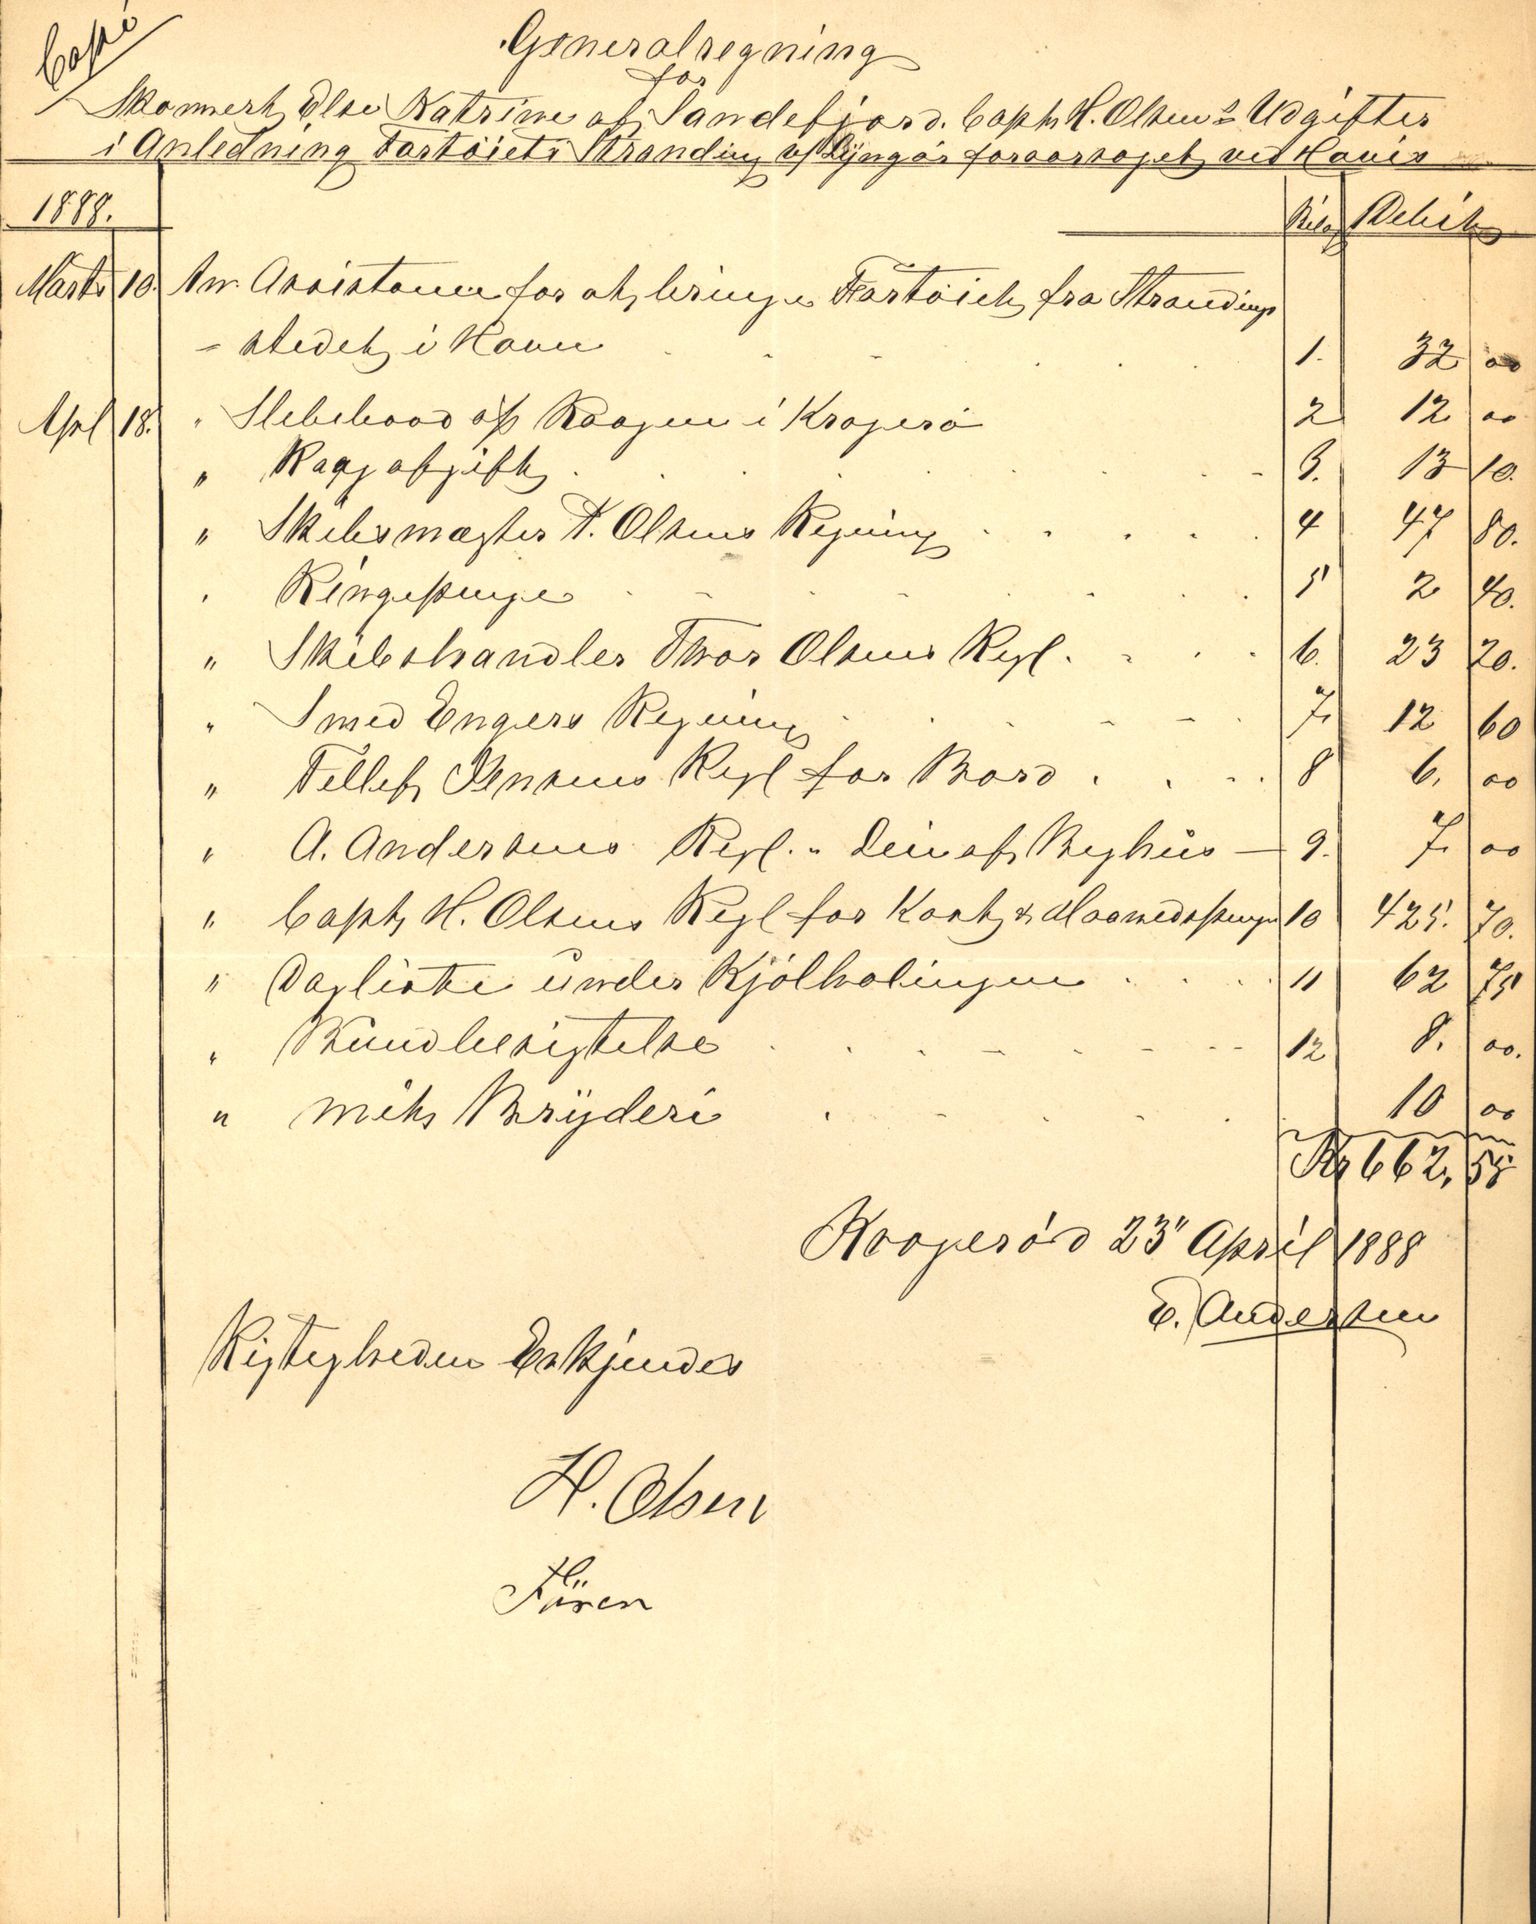 Copi
Generalregning
for
Skonnert Else Katrine af Sandefjord. Capt H. Olsens Udgifter
i Anledning Fartøiets Stranding af Lyngør foraarsaget ved Havis
1888. Bilag Debit
Marts 10. An Assistance for at bringe Fartøiet fra Strandings
- stedet i Havn 1. 32 00
Apl 18. " Slebebaad af Kragen i Kragerø 2 12 00
" Kajafgift 3. 13 10.
" Skibsmægler T. Olsens Regning 4 47 80.
" Ringepenge 5 2 40.
" Skibshandler Thor Olsens Regl. 6. 23 20.
" Smed Engers Regning 7. 12 60
" Tellef Jensens Regl for Bord 8 6. 00
" A. Andersens Regl. " Leie af Beghus 9. 7. 00
" Capt H. Olsens Regl for Kost & Maanedspenge 10 425. 70.
" Dagliste under Kjølhalingen 11 62 75
" Bundbesigtelse 12 8. 00.
" mit Bryderi 10 00
Kr 662, 55
Kragerø d 23" April 1888
E. Andersen
Rigtigheden Erkjendes
H. Olsen
Føreren